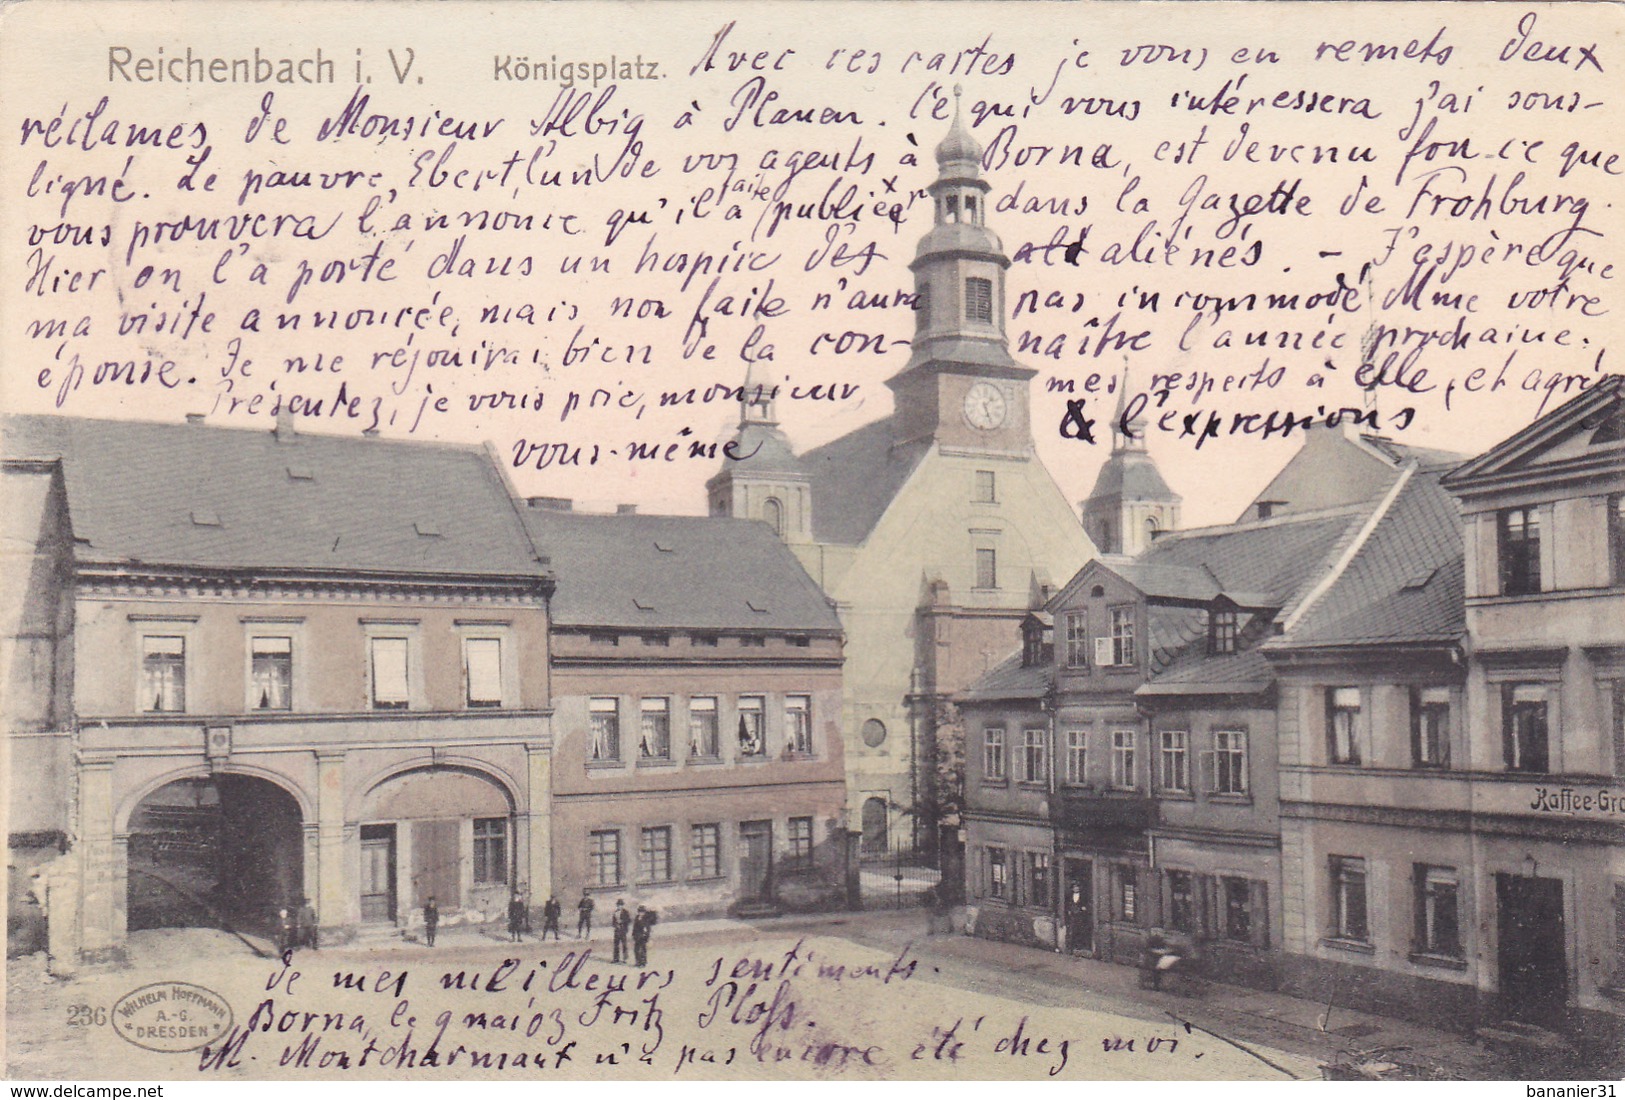 Reichenbach i. V. Königsplatz. Avec ces cartes je vous en remets deux
réclames de Monsieur Albig à Plauen. Ce qui vous intéressera j'ai sous-
ligné. Le pauvre Ebert, l'un de vos agents à Borna, est devenu fou ce que
vous prouvera l'annonce qu'il a faite publier dans la Gazette de Frohburg.
Hier on l'a porté dans un hospice des aliénés. – J'espère que
ma visite annoncée, mais non faite n'aura pas incommodé Mme votre
épouse. Je me réjouirai bien de la con- naître l'année prochaine.
Présentez, je vous prie, monsieur, mes respects à elle, et agréez
vous-même & l'expressions
Kaffee-Gro
de mes meilleurs sentiments.
Borna, le 9 mai 03 Fritz Ploss.
M. Montcharmant n'a pas encore été chez moi.
236 WILHELM HOFFMANN
A.-G.
DRESDEN
delcampe.net
bananier31